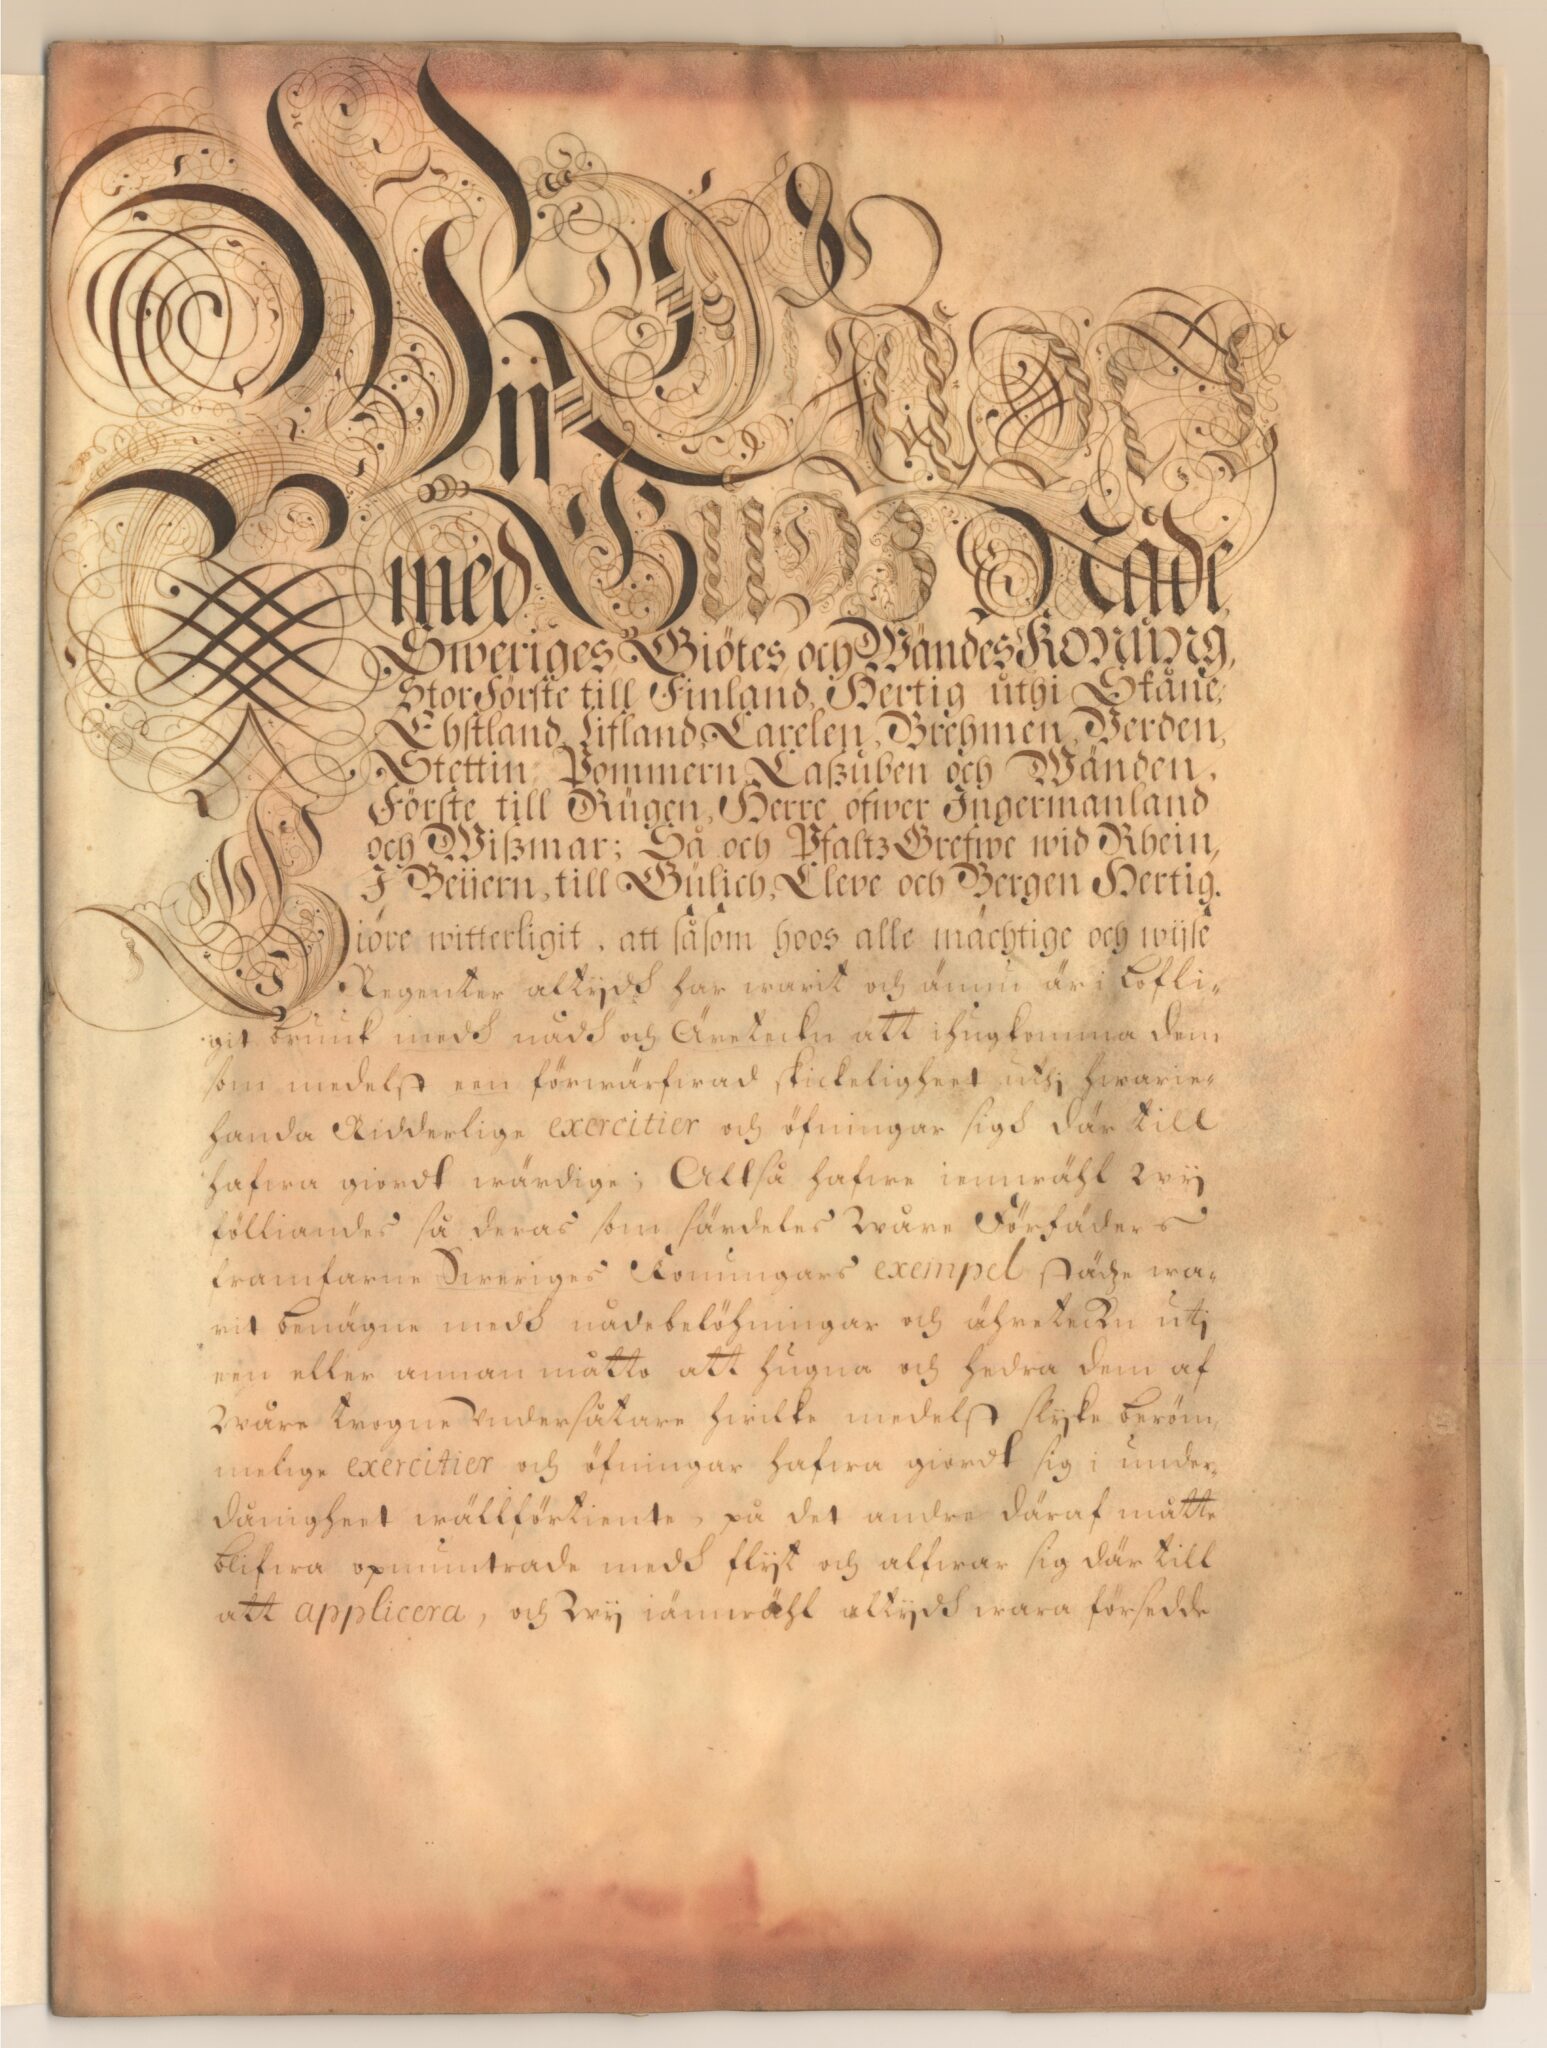 Wij CARL
med Gudz Nåde,
Sweriges, Giötes och Wändes Konung,
StorFörste till Finland, Hertig uthi Skåne,
Ehstland, Lifland, Carelen, Brehmen, Verden,
Stettin, Pommern, Caßuben och Wänden,
Förste till Rügen, Herre öfwer Ingermanland
och Wißmar; Så och Pfaltz Grefwe wid Rhein,
I Beijern, till Gülich, Cleve och Bergen Hertig.
Giöre witterligit, att såsom hoos alle mächtige och wijse
Regenter altijdh har warit och ännu är i lofli-
git bruuk medh nådh och Äretekn att ihugkomma dem
som medelst een förwärfwad skickeligheet uthj hwarie-
handa Ridderlige exercitier och öfningar sigh där till
hafwa giordt wärdige; Altså hafwe iemwähl Wij
fölliandes så deras som särdeles Wåre Förfäders
framfarne Sweriges Konungars exempel städze wa-
rit benägne medh nådebelöhningar och ähreteckn utj
een eller annan måtto att hugna och hedra dem af
Wåre trogne Undersåtare hwilke medelst slijke beröm-
melige exercitier och öfningar hafwa giordt sig i under-
dånigheet wällförtiente, på det andre däraf måtte
blifwa opmuntrade medh flijt och alfwar sig där till
att applicera, och Wij iämwähl altijdh wara försedde